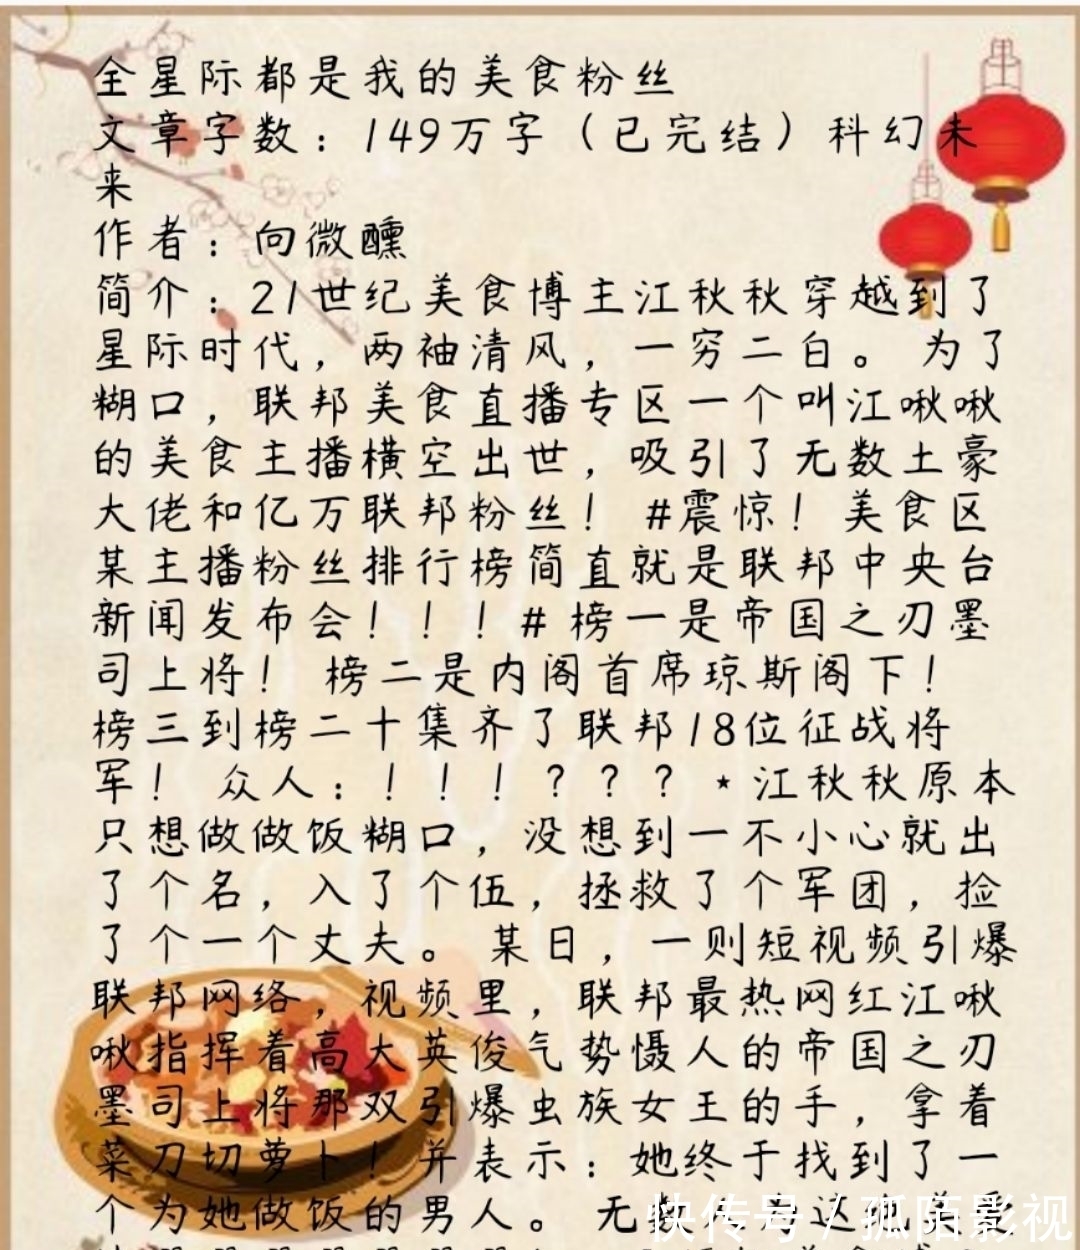 全星际都是我的美食粉丝
文章字数：149万字（已完结）科幻未
来
作者：向微醺
简介：21世纪美食博主江秋秋穿越到了
星际时代，两袖清风，一穷二白。 为了
糊口，联邦美食直播专区一个叫江啾啾
的美食主播横空出世，吸引了无数土豪
大佬和亿万联邦粉丝！ #震惊！美食区
某主播粉丝排行榜简直就是联邦中央台
新闻发布会！！！# 榜一是帝国之刃墨
司上将！ 榜二是内阁首席琼斯阁下！
榜三到榜二十集齐了联邦18位征战将
军！ 众人：！！！？？？ ★江秋秋原本
只想做做饭糊口，没想到一不小心就出
了个名，入了个伍，拯救了个军团，捡
了个一个丈夫。 某日，一则短视频引爆
联邦网络，视频里，联邦最热网红江啾
啾指挥着高大英俊气势慑人的帝国之刃
墨司上将那双引爆虫族女王的手，拿着
菜刀切萝卜！并表示：她终于找到了一
个为她做饭的男人。 无数
快传号 / 孤陌影视